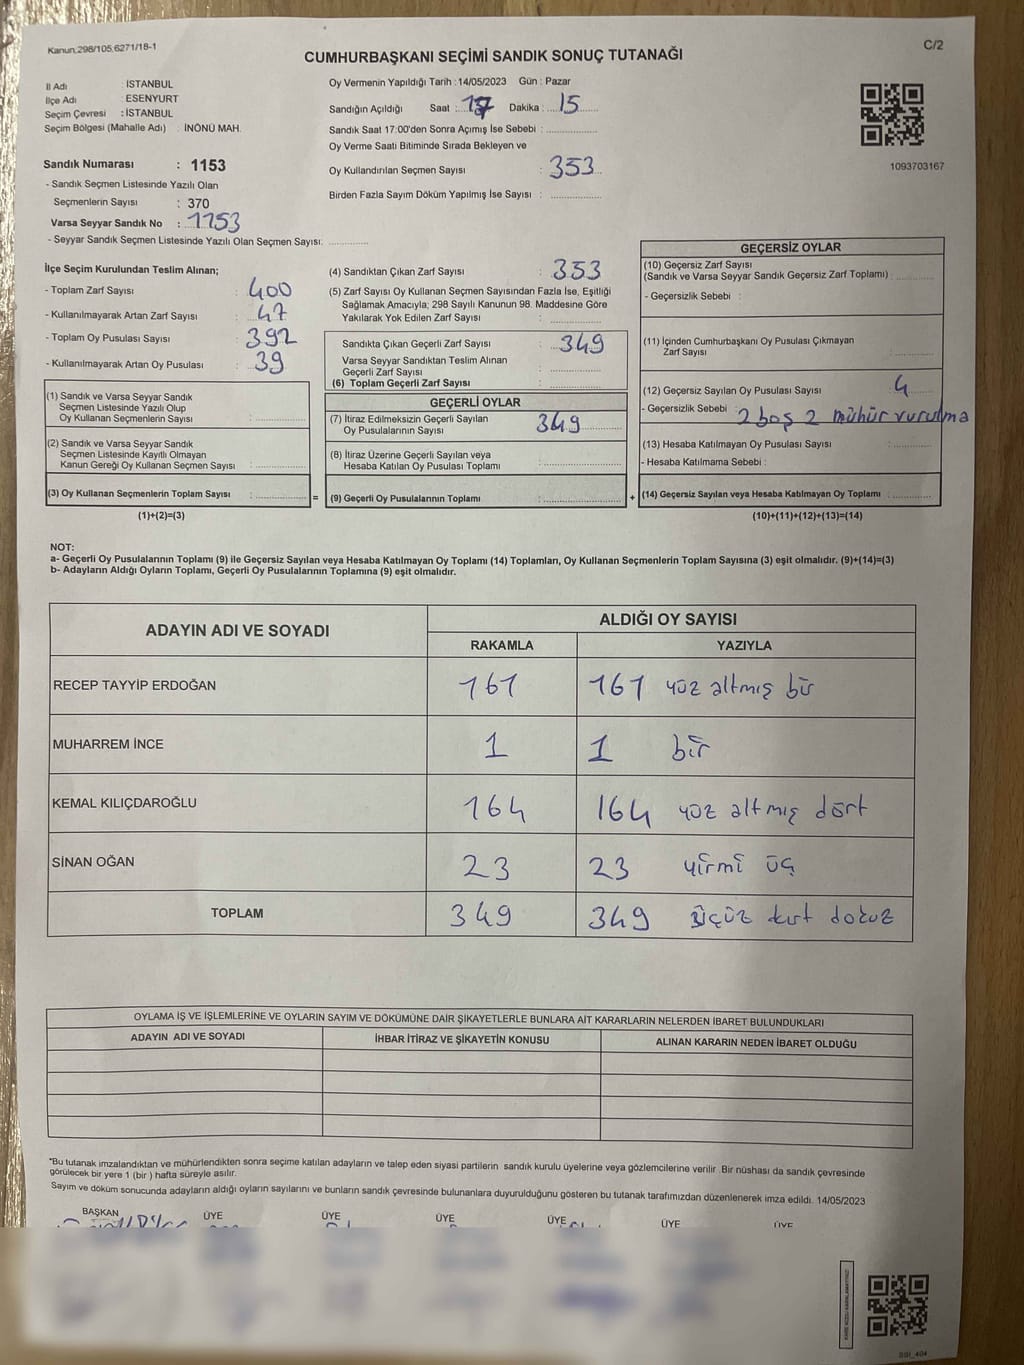 Kanun,298/105,6271/18-1
C/2
CUMHURBAŞKANI SEÇİMİ SANDIK SONUÇ TUTANAĞI
İl Adı : İSTANBUL
İlçe Adı : ESENYURT
Seçim Çevresi : İSTANBUL
Seçim Bölgesi (Mahalle Adı) : İNÖNÜ MAH.
Oy Vermenin Yapıldığı Tarih :14/05/2023 Gün : Pazar
Sandığın Açıldığı Saat : 17 Dakika : 15
Sandık Saat 17:00'den Sonra Açımış İse Sebebi :
Oy Verme Saati Bitiminde Sırada Bekleyen ve
Oy Kullandırılan Seçmen Sayısı : 353
Birden Fazla Sayım Döküm Yapılmış İse Sayısı :
1093703167
Sandık Numarası : 1153
- Sandık Seçmen Listesinde Yazılı Olan
Seçmenlerin Sayısı : 370
Varsa Seyyar Sandık No : 1153
- Seyyar Sandık Seçmen Listesinde Yazılı Olan Seçmen Sayısı:
İlçe Seçim Kurulundan Teslim Alınan;
- Toplam Zarf Sayısı : 400
- Kullanılmayarak Artan Zarf Sayısı : 47
- Toplam Oy Pusulası Sayısı : 392
- Kullanılmayarak Artan Oy Pusulası : 39
(1) Sandık ve Varsa Seyyar Sandık
Seçmen Listesinde Yazılı Olup
Oy Kullanan Seçmenlerin Sayısı :
(2) Sandık ve Varsa Seyyar Sandık
Seçmen Listesinde Kayıtlı Olmayan
Kanun Gereği Oy Kullanan Seçmen Sayısı :
(3) Oy Kullanan Seçmenlerin Toplam Sayısı :
(1)+(2)=(3)
(4) Sandıktan Çıkan Zarf Sayısı : 353
(5) Zarf Sayısı Oy Kullanan Seçmen Sayısından Fazla İse, Eşitliği
Sağlamak Amacıyla; 298 Sayılı Kanunun 98. Maddesine Göre
Yakılarak Yok Edilen Zarf Sayısı :
Sandıkta Çıkan Geçerli Zarf Sayısı : 349
Varsa Seyyar Sandıktan Teslim Alınan
Geçerli Zarf Sayısı :
(6) Toplam Geçerli Zarf Sayısı :
GEÇERLİ OYLAR
(7) İtiraz Edilmeksizin Geçerli Sayılan
Oy Pusulalarının Sayısı : 349
(8) İtiraz Üzerine Geçerli Sayılan veya
Hesaba Katılan Oy Pusulası Toplamı :
= (9) Geçerli Oy Pusulalarının Toplamı : +
GEÇERSİZ OYLAR
(10) Geçersiz Zarf Sayısı
(Sandık ve Varsa Seyyar Sandık Geçersiz Zarf Toplamı) :
- Geçersizlik Sebebi :
(11) İçinden Cumhurbaşkanı Oy Pusulası Çıkmayan
Zarf Sayısı :
(12) Geçersiz Sayılan Oy Pusulası Sayısı : 4
- Geçersizlik Sebebi : 2 boş 2 mühür vurulma
(13) Hesaba Katılmayan Oy Pusulası Sayısı :
- Hesaba Katılmama Sebebi :
(14) Geçersiz Sayılan veya Hesaba Katılmayan Oy Toplamı :
(10)+(11)+(12)+(13)=(14)
NOT:
a- Geçerli Oy Pusulalarının Toplamı (9) ile Geçersiz Sayılan veya Hesaba Katılmayan Oy Toplamı (14) Toplamları, Oy Kullanan Seçmenlerin Toplam Sayısına (3) eşit olmalıdır. (9)+(14)=(3)
b- Adayların Aldığı Oyların Toplamı, Geçerli Oy Pusulalarının Toplamına (9) eşit olmalıdır.
ADAYIN ADI VE SOYADI
ALDIĞI OY SAYISI
RAKAMLA YAZIYLA
RECEP TAYYİP ERDOĞAN 161 161 yüz altmış bir
MUHARREM İNCE 1 1 bir
KEMAL KILIÇDAROĞLU 164 164 yüz altmış dört
SİNAN OĞAN 23 23 yirmi üç
TOPLAM 349 349 üçüz kırt dokuz
OYLAMA İŞ VE İŞLEMLERİNE VE OYLARIN SAYIM VE DÖKÜMÜNE DAİR ŞİKAYETLERLE BUNLARA AİT KARARLARIN NELERDEN İBARET BULUNDUKLARI
ADAYIN ADI VE SOYADI İHBAR İTİRAZ VE ŞİKAYETİN KONUSU ALINAN KARARIN NEDEN İBARET OLDUĞU
*Bu tutanak imzalandıktan ve mühürlendikten sonra seçime katılan adayların ve talep eden siyasi partilerin sandık kurulu üyelerine veya gözlemcilerine verilir .Bir nüshası da sandık çevresinde
görülecek bir yere 1 (bir ) hafta süreyle asılır.
Sayım ve döküm sonucunda adayların aldığı oyların sayılarını ve bunların sandık çevresinde bulunanlara duyurulduğunu gösteren bu tutanak tarafımızdan düzenlenerek imza edildi. 14/05/2023
BAŞKAN ÜYE ÜYE ÜYE ÜYE ÜYE ÜYE